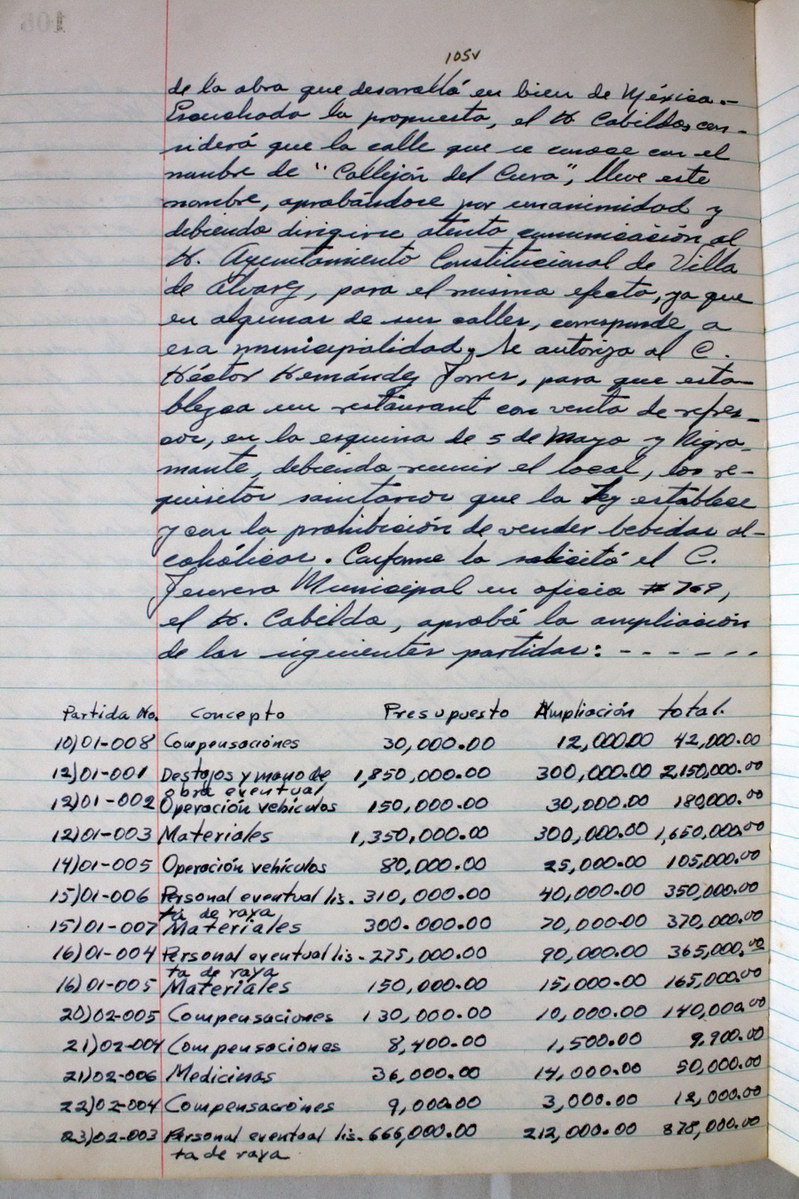 105v
de la obra que desarrolló en bien de México.-
Escuchada la propuesta, el H. Cabildo, con-
sideró que la calle que se conoce con el
nombre de "Callejón del Cura", lleve este
nombre, aprobándose por unanimidad y
debiendo dirigirse atenta comunicación al
H. Ayuntamiento Constitucional de Villa
de Alvarez, para el mismo efecto, ya que
en algunas de sus calles, corresponde, a
esa municipalidad. Se autoriza al C.
Héctor Hernández Torres, para que esta-
blezca un restaurant con venta de refres-
cos, en la esquina de 5 de Mayo y Nigro-
mante, debiendo reunir el local, los re-
quisitos sanitarios que la Ley establece
y con la prohibición de vender bebidas al-
cohólicas. Conforme lo solicitó el C.
Tesorero Municipal en oficio # 769,
el H. Cabildo, aprobó la ampliación
de las siguientes partidas: - - - - - -
Partida No. Concepto Presupuesto Ampliación total.
10)01-008 Compensaciones 30,000.00 12,000.00 42,000.00
12)01-001 Destajos y mano de 1,850,000.00 300,000.00 2,150,000.00
obra eventual
12)01-002 Operación vehículos 150,000.00 30,000.00 180,000.00
12)01-003 Materiales 1,350,000.00 300,000.00 1,650,000.00
14)01-005 Operación vehículos 80,000.00 25,000.00 105,000.00
15)01-006 Personal eventual lis. 310,000.00 40,000.00 350,000.00
ta de raya
15)01-007 Materiales 300.000.00 70,000.00 370,000.00
16)01-004 Personal eventual lis- 275,000.00 90,000.00 365,000.00
ta de raya
16)01-005 Materiales 150,000.00 15,000.00 165,000.00
20)02-005 Compensaciones 130,000.00 10,000.00 140,000.00
21)02-004 Compensaciones 8,400.00 1,500.00 9,900.00
21)02-006 Medicinas 36,000.00 14,000.00 50,000.00
22)02-004 Compensaciones 9,000.00 3,000.00 12,000.00
23)02-003 Personal eventual lis. 666,000.00 212,000.00 878,000.00
ta de raya